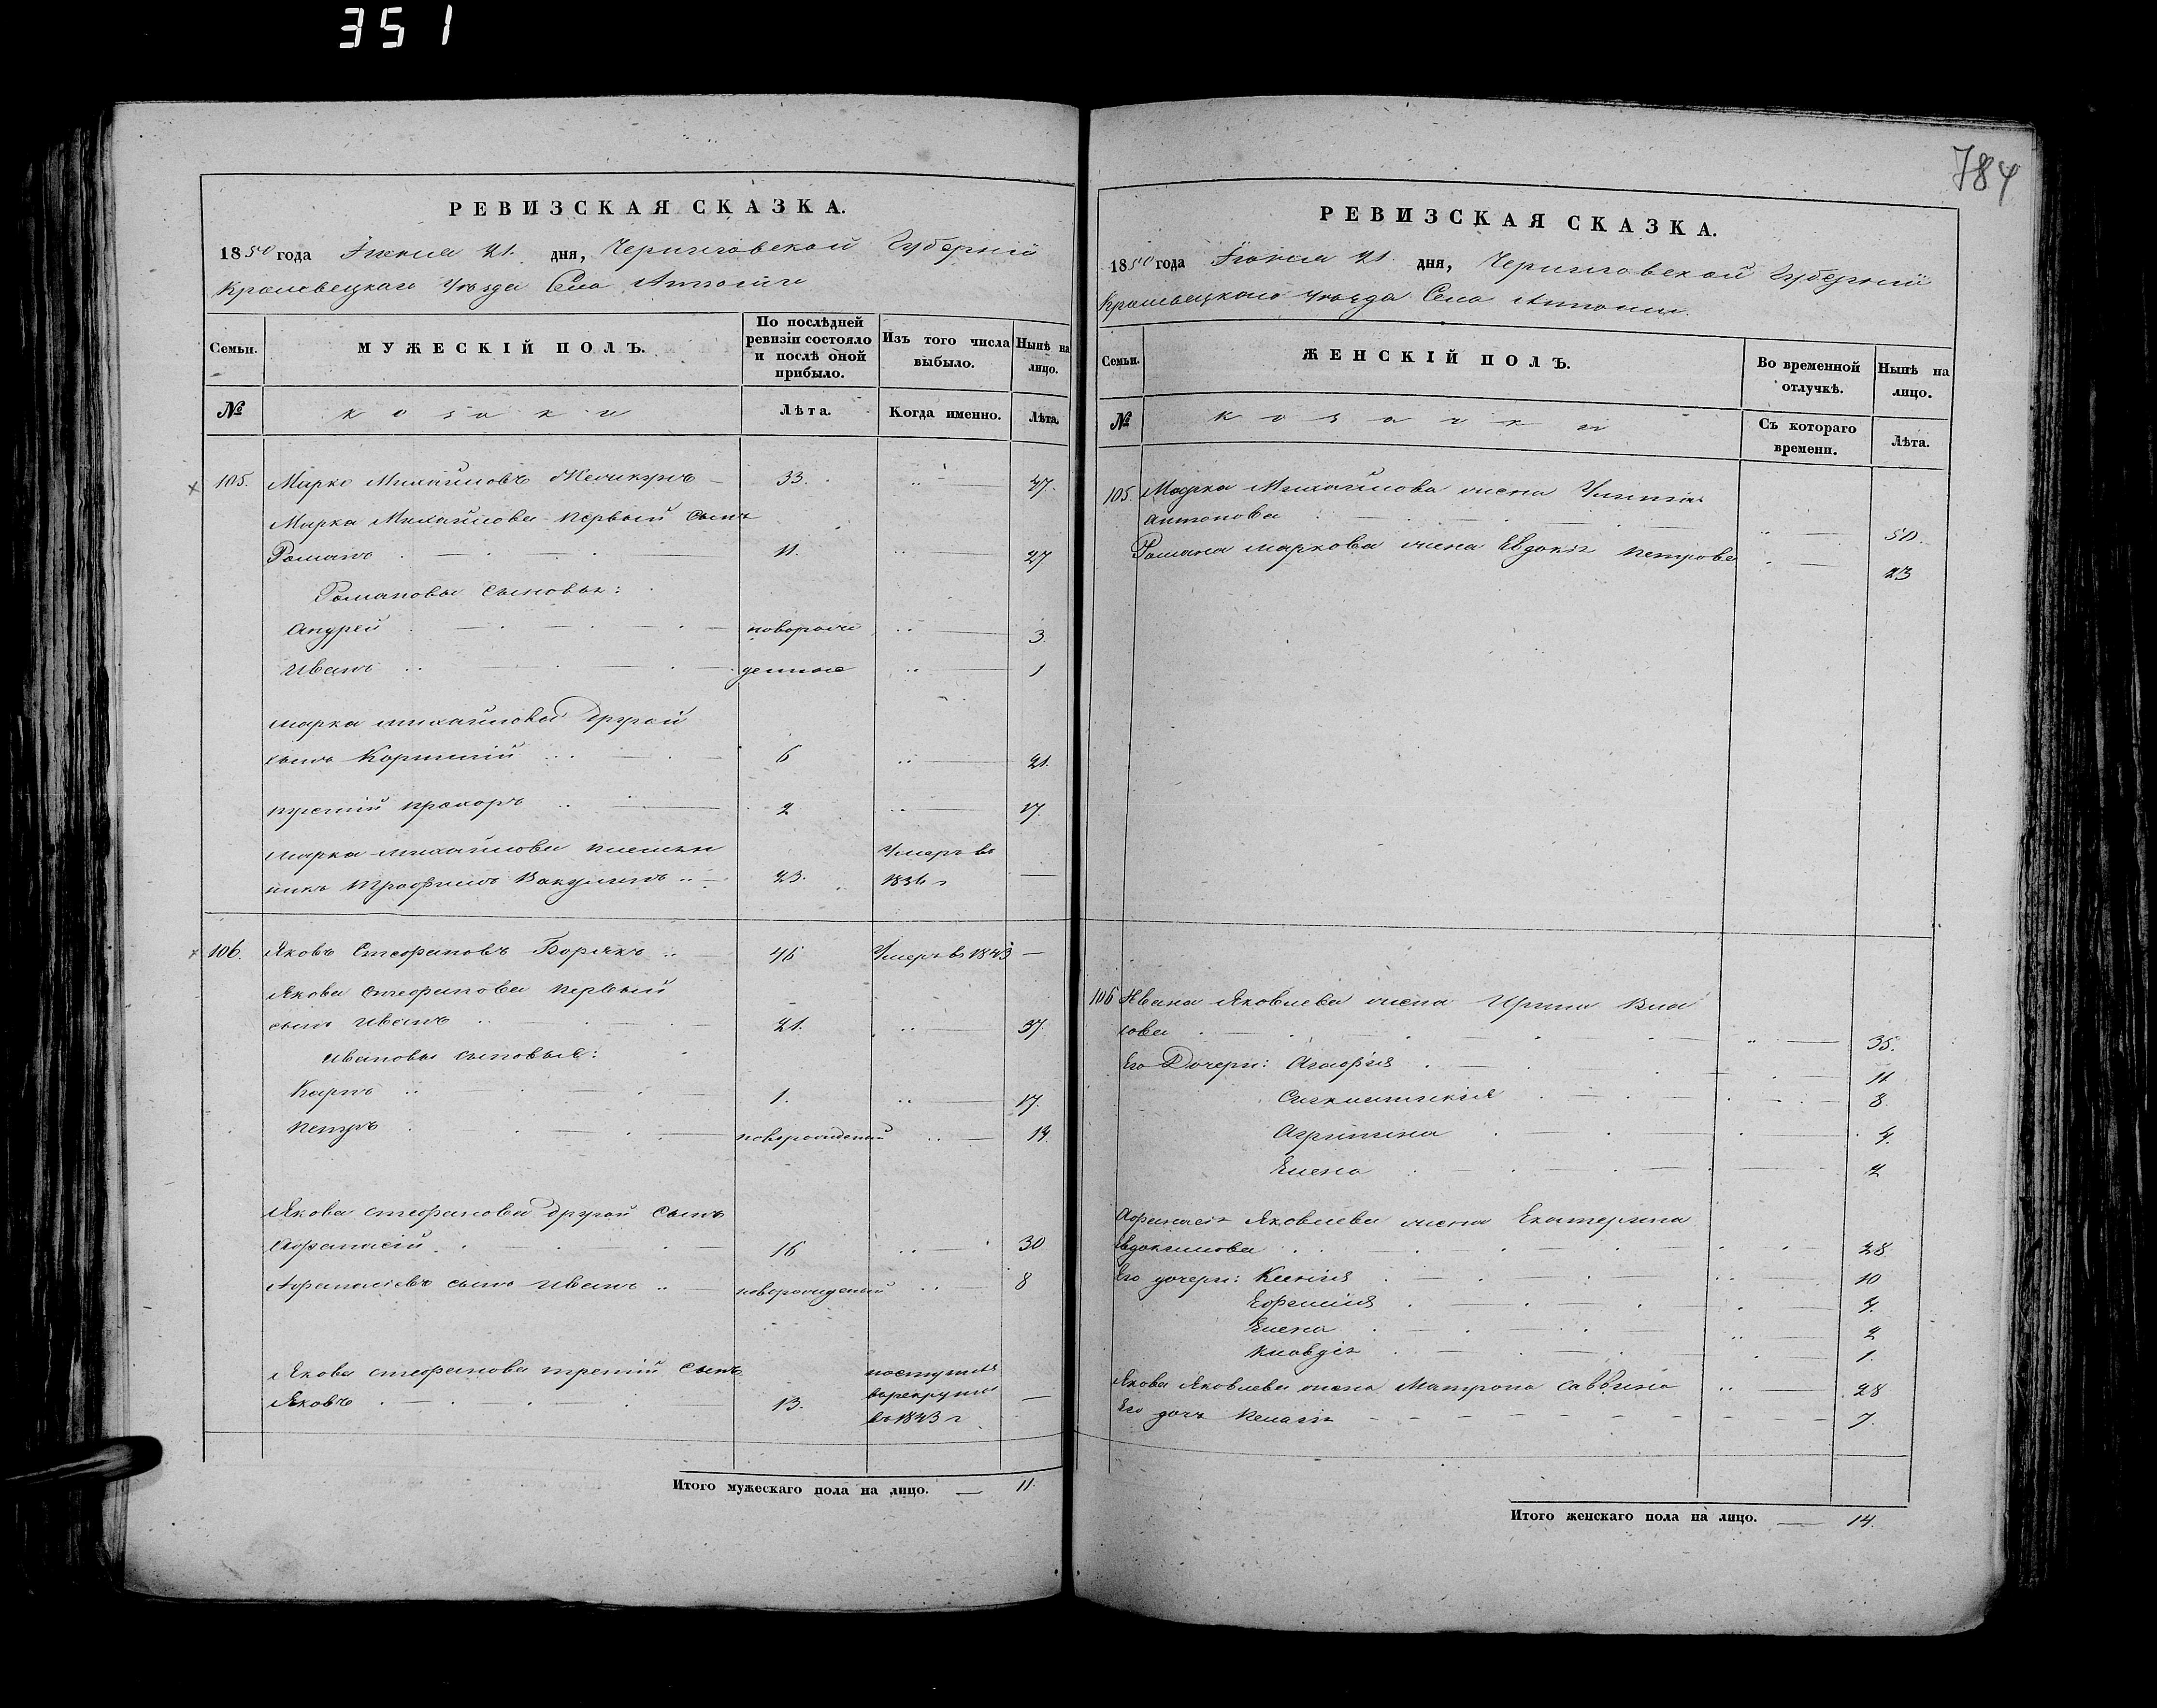 351
784
РЕВИЗСКАЯ СКАЗКА.
1850 года Іюня 21. дня, Черниговской Губерніи
Кролевецкаго уѣзда Села
Семьи.
МУЖЕСКІЙ ПОЛЪ.
По послѣдней ревизіи состояло и послѣ оной прибыло.
Изъ того числа выбыло.
Нынѣ на лицо.
№
козаки
Лѣта.
Когда именно.
Лѣта.
105. Марко Михайловъ 33. 47.
Марка Михайлова первый сынъ
Романъ 11. 27
Романовы сыновья:
Андрей новорож 3.
Иванъ денные 1
Марка Михайлова другой
сынъ Корнилій 6 21.
третій Прохоръ 2 17.
Марка Михайлова племян Умеръ въ
никъ Трофимъ 23. 1836 г
106. Яковъ Стефановъ Борякъ 46 Умеръ въ 1843 —
Якова Стефанова первый
сынъ Иванъ 21. 37.
Ивановы сыновья:
Карпъ 1. 17.
Петръ новорожденный 14.
Якова Стефанова другой сынъ
Афанасій 16 30
Афанасіевъ сынъ Иванъ новорожденный 8
Якова Стефанова третій сынъ поступилъ
Яковъ 13. въ рекруты —
въ 1843 г
Итого мужескаго пола на лицо. — 11.
РЕВИЗСКАЯ СКАЗКА.
1850 года Іюня 21. дня, Черниговской Губерніи
Кролевецкаго уѣзда Села
Семьи.
ЖЕНСКІЙ ПОЛЪ.
Во временной отлучкѣ.
Нынѣ на лицо.
№
козачки
Съ котораго времени.
Лѣта.
105. Марка Михайлова жена
Антонова 50.
Романа Маркова жена Евдокія Петрова 23
106 Ивана Яковлева жена Ирина Вла
сова 35.
Его Дочери: Агафія 11
8.
Агрипина 4.
Елена 2
Афанасія Яковлева жена Екатерина
Евдокимова 28.
Его дочери: Ксенія 10
Ефимія 4.
Елена 2
Клавдія 1.
Якова Яковлева жена Матрона Саввина 28
Его дочь Пелагія 7.
Итого женскаго пола на лицо. — 14.